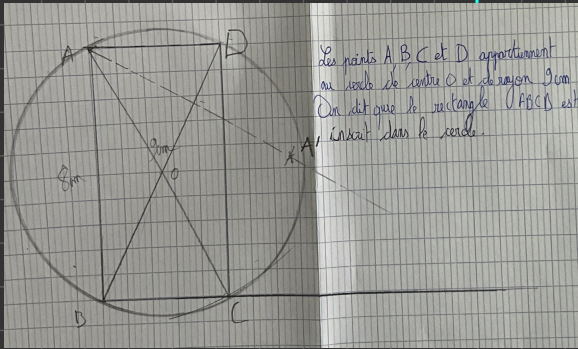 A
D
Les points A B C et D appartiennent
au cercle de centre O et de rayon 9cm
On dit que le rectangle ABCD est
A' inscrit dans le cercle.
9cm
O
8cm
B
C